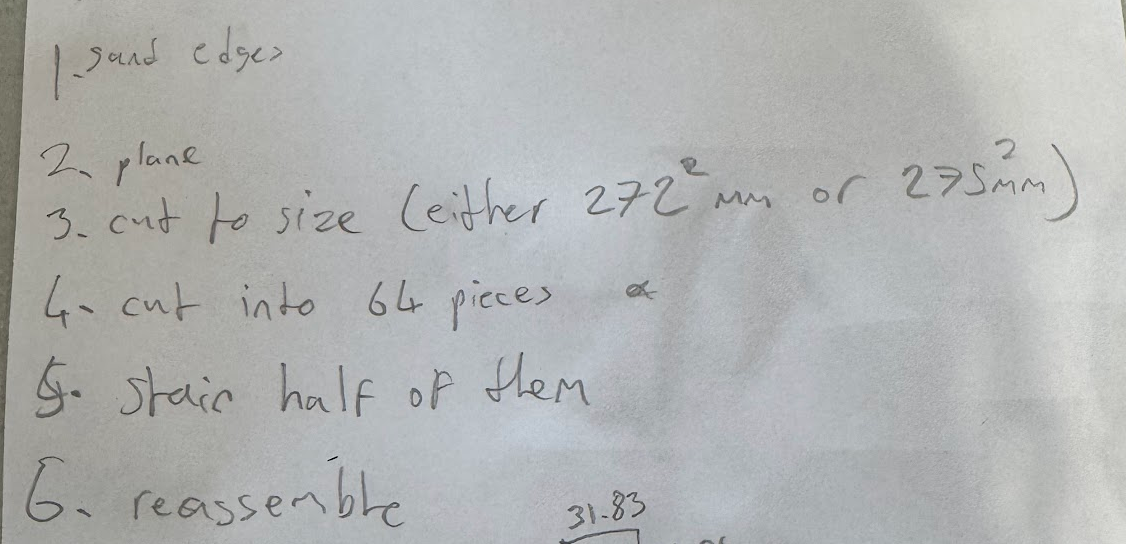 1. sand edges
2. plane
3. cut to size (either 272² mm or 275² mm)
4. cut into 64 pieces
5. stain half of them
6. reassemble
31.83